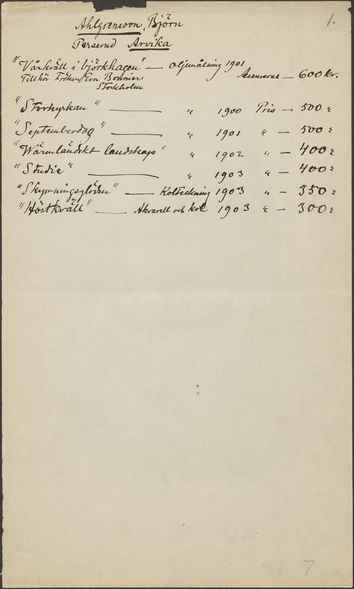 1.
Ahlgrensson, Björn
Perserud Arvika
"Vårkväll i björkhagen" — Oljemålning 1901
Tillhör Fröken Eva Bonnier Assureras — 600 kr.
Stockholm
"Storkyrkan" — " 1900 Pris — 500:
"Septemberdag" — " 1901 " — 500:
"Wärmländskt landskap" " 1902 " — 400:
"Studie" — " 1903 " — 400:
"Skymningsglöden" — Kolteckning 1903 " — 350:
"Höstkväll" — Akvarell och kol 1903 " — 300:
7